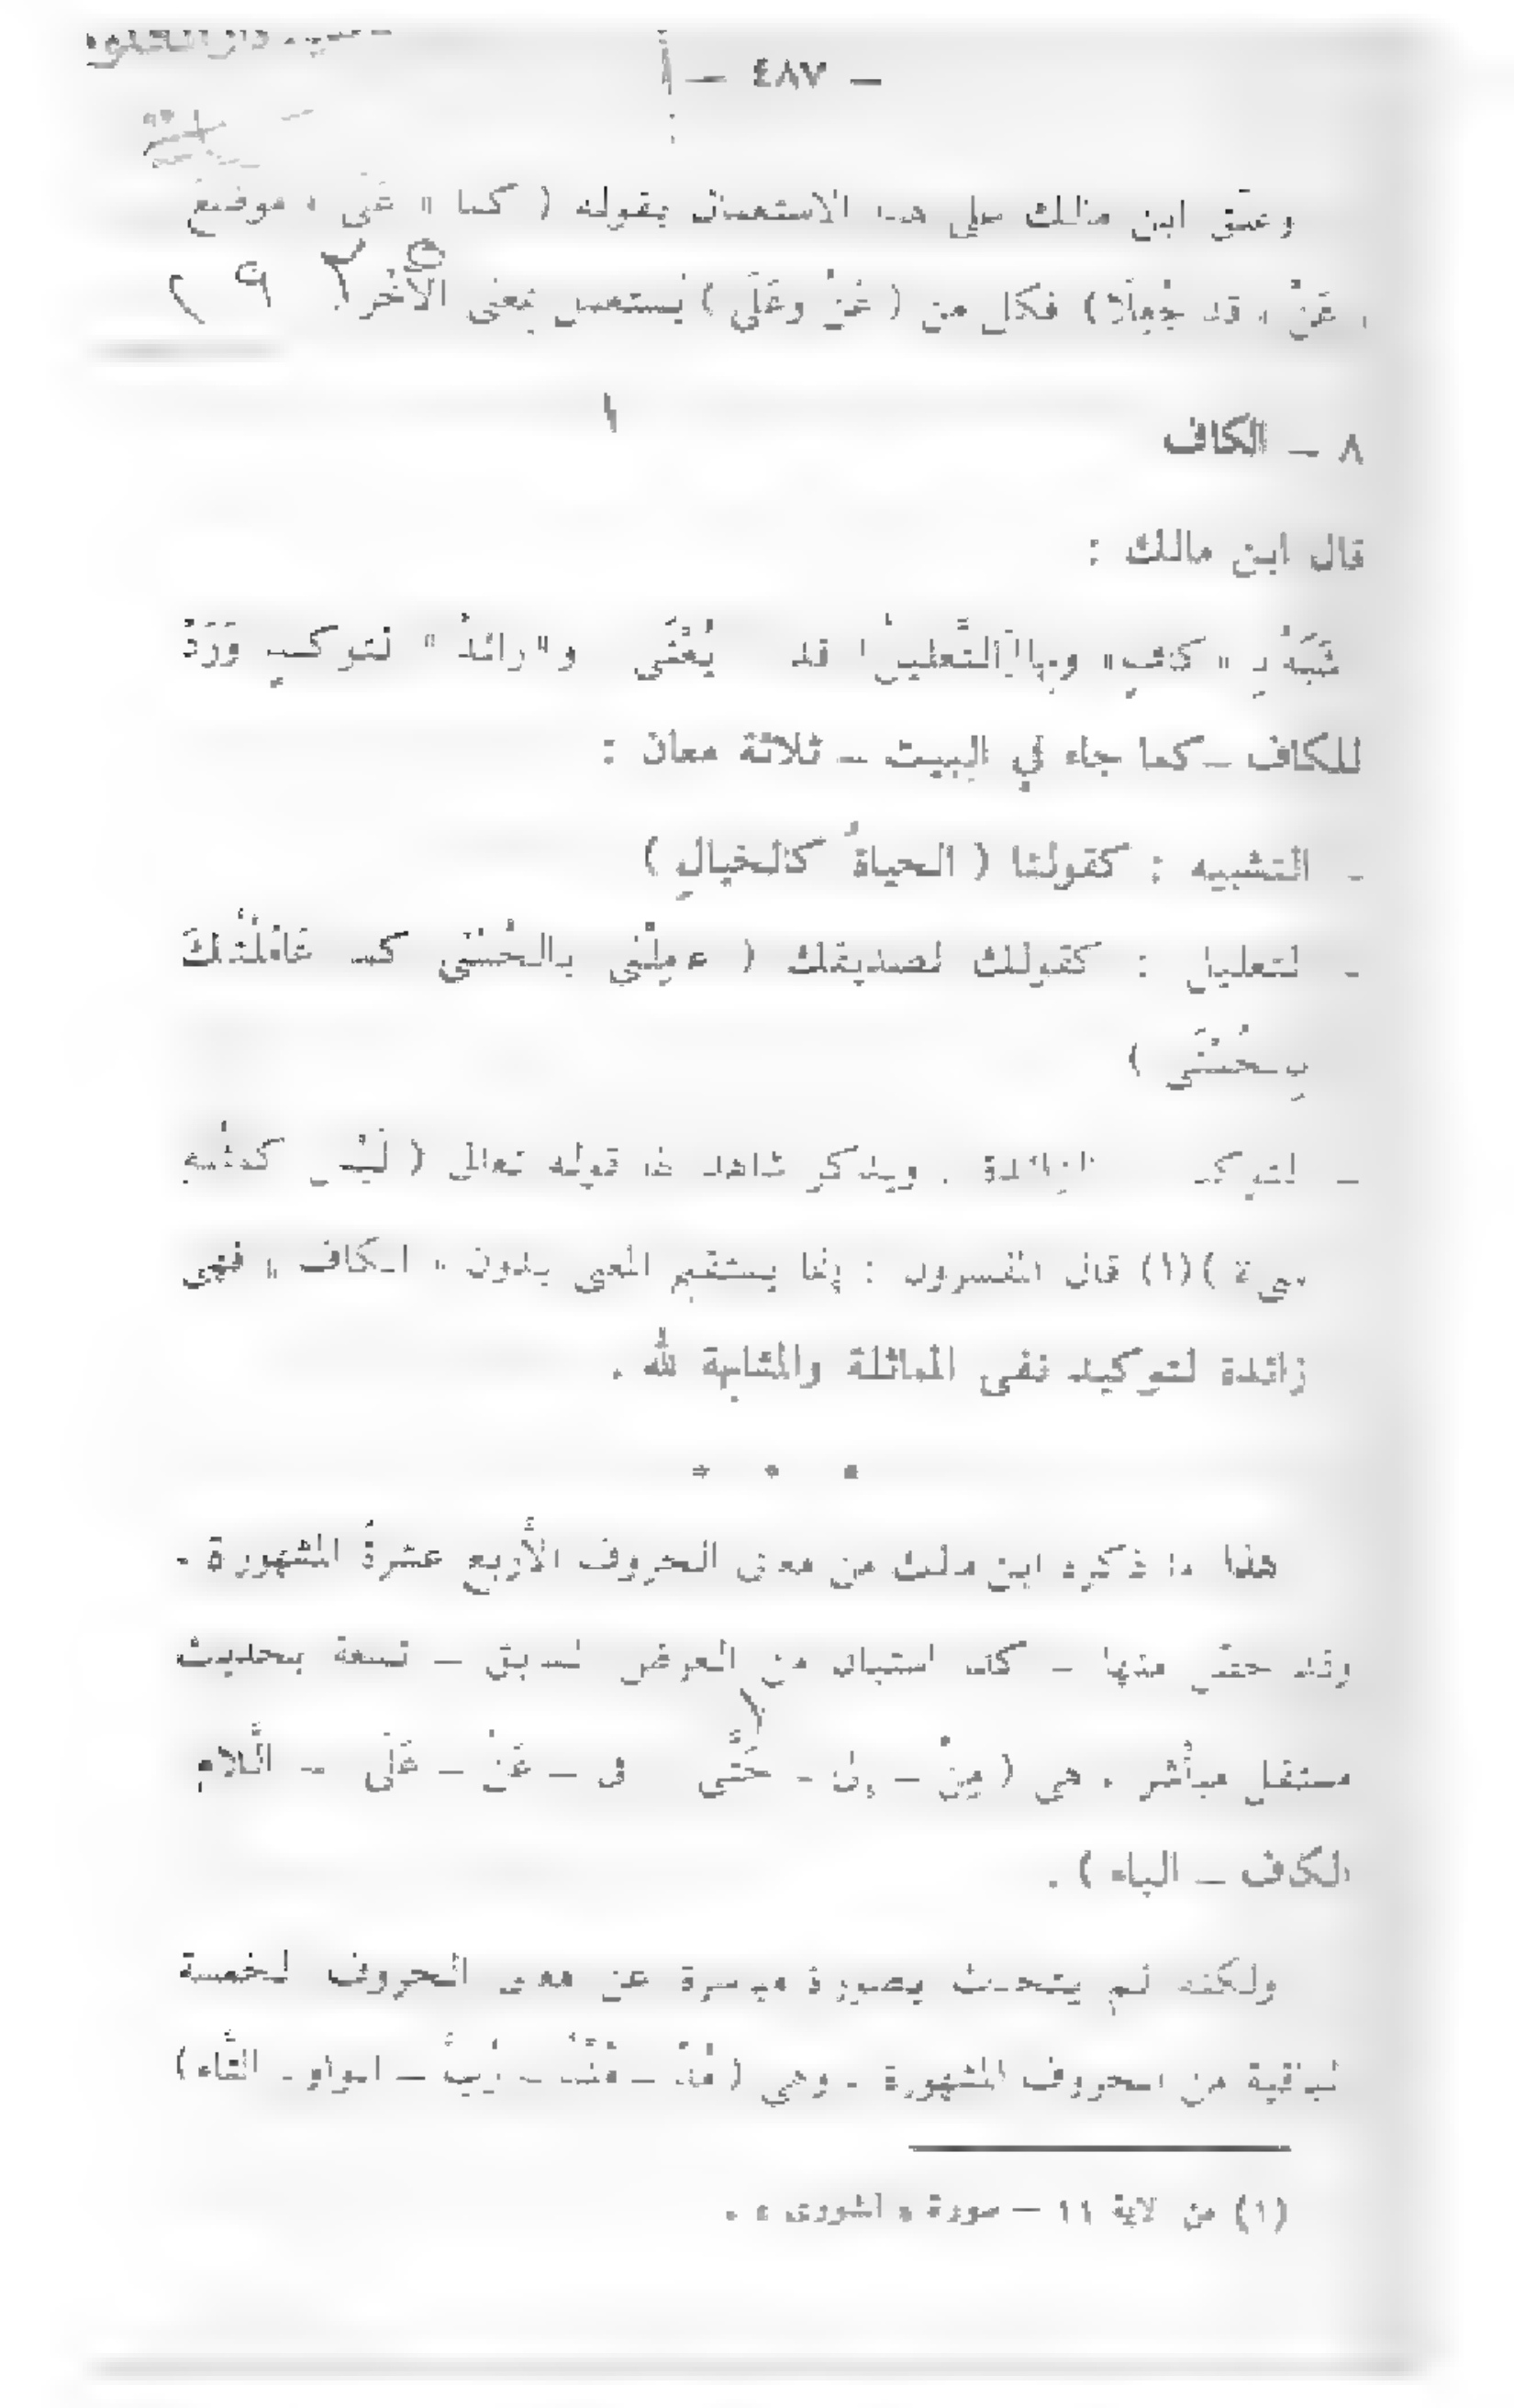 — ٤٨٧ —
وعلّق ابن مالك على هذا الاستعمال بقوله ( كما « عَلَى » موضعَ
« عَنْ » قد جُعِلَا) فكل من ( عَنْ وعَلَى ) يُستعمل بمعنى الآخر.
٨ – الكاف
قال ابن مالك :
شَبِّهْ بـ « كافٍ » وبها التَّعليلُ قد يُعْنَى و« زائدٌ » لتوكيدٍ وَرَدْ
للكاف – كما جاء في البيت – ثلاثة معان :
– التشبيه : كقولنا ( الحياةُ كالخيالِ )
– التعليل : كقولك لصديقك ( عامِلْنِى بالحُسْنَى كما عَامَلْتُكَ
بالحُسْنَى )
– التوكيد الزائدة . ويذكر شاهد لها قوله تعالى ( لَيْسَ كمثْلِهِ
شيء )(١) قال المفسرون : إنما يستقيم المعنى بدون « الكاف » فهى
زائدة لتوكيد نفى المماثلة والمشابهة لله .
* * *
هذا ما ذكره ابن مالك من معانى الحروف الأربع عشرةَ المشهورة .
وقد خصّ منها – كما استبان من العرض السابق – تسعة بحديث
مستقل مباشر ، هى ( مِنْ – إلى – حَتَّى – فى – عَنْ – عَلَى – اللام
الكاف – الباء ) .
ولكنه لم يتحدث بصورة مباشرة عن معانى الحروف الخمسة
الباقية من الحروف المشهورة . وهى ( مُذْ – مُنْذُ – رُبَّ – الواو – التَّاء)
(١) من الآية ١١ – سورة « الشورى » .